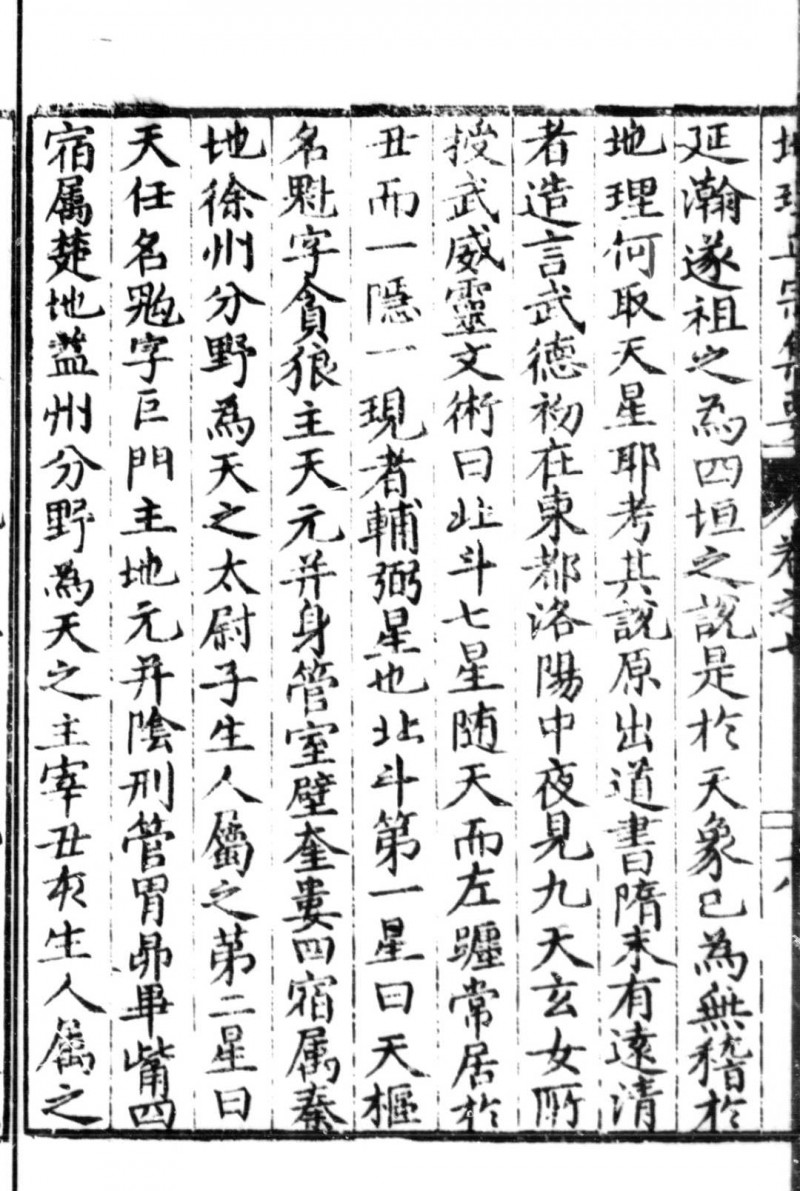 地理正宗集要 卷之七 二十八
延瀚遂祖之為四垣之說是於天象已為無稽於
地理何取天星耶考其說原出道書隋末有遠清
者造言武德初在東都洛陽中夜見九天玄女所
授武威靈文術曰北斗七星随天而左躔常居於
丑而一隱一現者輔弼星也北斗第一星曰天樞
名魁字貪狼主天元并身管室壁奎婁四宿属秦
地徐州分野為天之太尉子生人屬之第二星曰
天任名䰢字巨門主地元并陰刑管胃昴畢觜四
宿属楚地益州分野為天之主宰丑亥生人属之